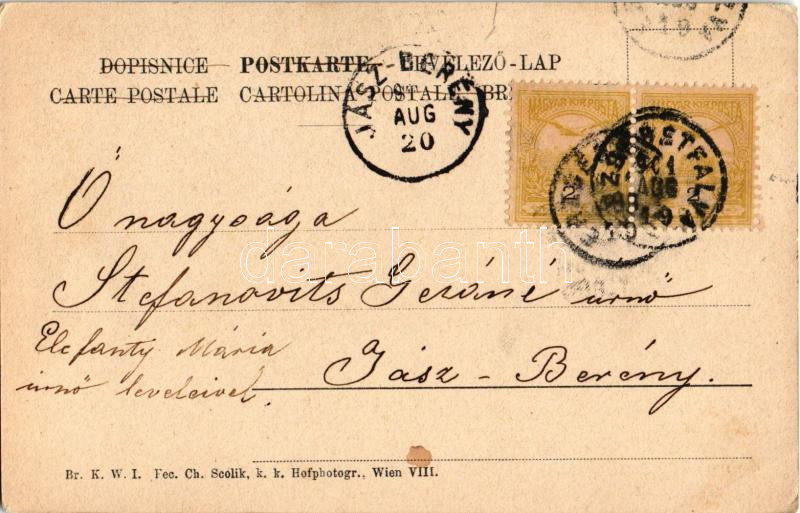 DOPISNICE POSTKARTE LEVELEZŐ-LAP
CARTE POSTALE CARTOLINA POSTALE
JÁSZ-BERÉNY
AUG
20
MAGYAR KIR. POSTA MAGYAR KIR. POSTA
2 2
AUG
19
Ő nagysága
Stefanovits Gézáné úrnő
Elefanty Mária
úrnő leveleivel.
Jász - Berény.
darabanth
Br. K. W. I. Fec. Ch. Scolik, k. k. Hofphotogr., Wien VIII.